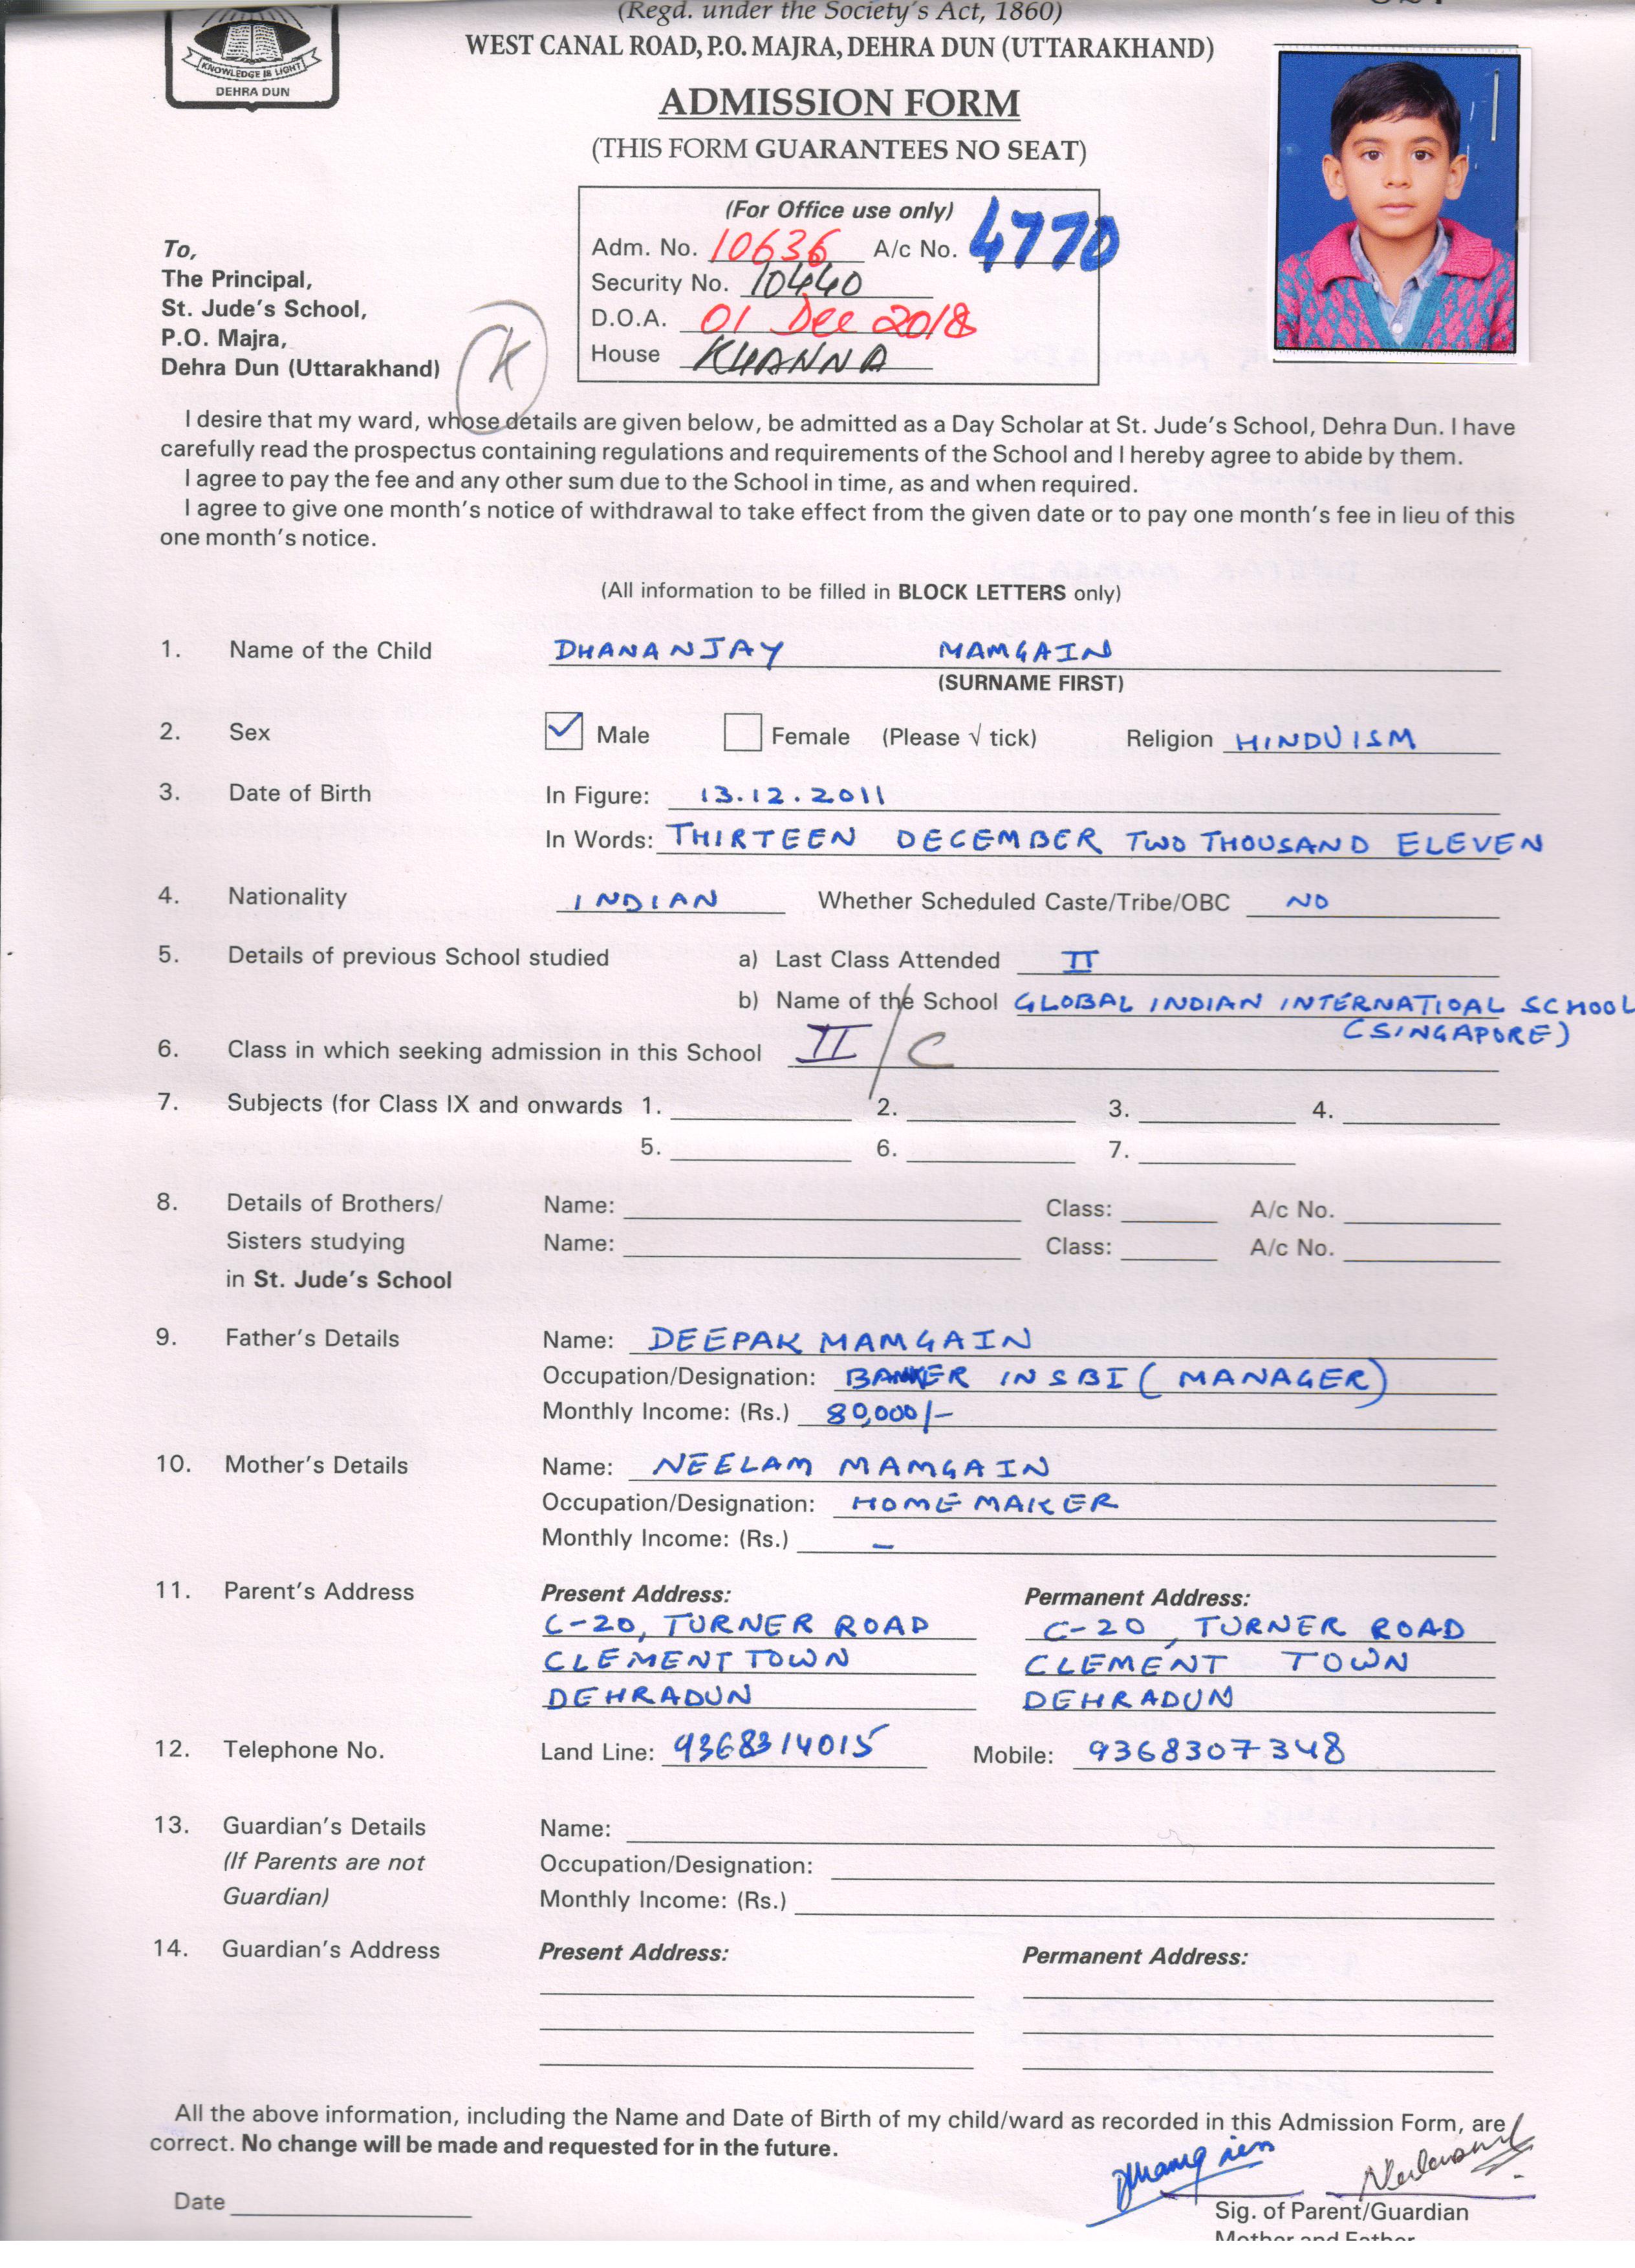 (Regd. under the Society's Act, 1860)
WEST CANAL ROAD, P.O. MAJRA, DEHRA DUN (UTTARAKHAND)
KNOWLEDGE IS LIGHT
DEHRA DUN
ADMISSION FORM
(THIS FORM GUARANTEES NO SEAT)
(For Office use only)
Adm. No. 10636 A/c No. 4770
Security No. 10440
D.O.A. 01 Dec 2018
House KHANNA
To,
The Principal,
St. Jude's School,
P.O. Majra,
Dehra Dun (Uttarakhand)
K
I desire that my ward, whose details are given below, be admitted as a Day Scholar at St. Jude's School, Dehra Dun. I have
carefully read the prospectus containing regulations and requirements of the School and I hereby agree to abide by them.
I agree to pay the fee and any other sum due to the School in time, as and when required.
I agree to give one month's notice of withdrawal to take effect from the given date or to pay one month's fee in lieu of this
one month's notice.
(All information to be filled in BLOCK LETTERS only)
1. Name of the Child DHANANJAY MAMGAIN
(SURNAME FIRST)
2. Sex Male Female (Please √ tick) Religion HINDUISM
3. Date of Birth In Figure: 13.12.2011
In Words: THIRTEEN DECEMBER TWO THOUSAND ELEVEN
4. Nationality INDIAN Whether Scheduled Caste/Tribe/OBC NO
5. Details of previous School studied a) Last Class Attended II
b) Name of the School GLOBAL INDIAN INTERNATIOAL SCHOOL
(SINGAPORE)
6. Class in which seeking admission in this School II / C
7. Subjects (for Class IX and onwards 1. 2. 3. 4.
5. 6. 7.
8. Details of Brothers/ Name: Class: A/c No.
Sisters studying Name: Class: A/c No.
in St. Jude's School
9. Father's Details Name: DEEPAK MAMGAIN
Occupation/Designation: BANKER IN SBI (MANAGER)
Monthly Income: (Rs.) 80,000/-
10. Mother's Details Name: NEELAM MAMGAIN
Occupation/Designation: HOME MAKER
Monthly Income: (Rs.) –
11. Parent's Address Present Address: Permanent Address:
C-20, TURNER ROAD C-20, TURNER ROAD
CLEMENT TOWN CLEMENT TOWN
DEHRADUN DEHRADUN
12. Telephone No. Land Line: 9368314015 Mobile: 9368307348
13. Guardian's Details Name:
(If Parents are not Occupation/Designation:
Guardian) Monthly Income: (Rs.)
14. Guardian's Address Present Address: Permanent Address:
All the above information, including the Name and Date of Birth of my child/ward as recorded in this Admission Form, are
correct. No change will be made and requested for in the future.
Date
Sig. of Parent/Guardian
Mother and Father